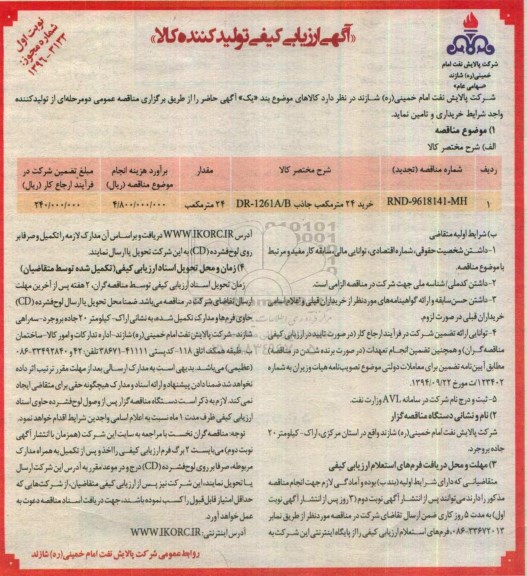 نوبت اول
شماره مجوز:
۱۳۹۶-۳۱۳۳
«آگهی ارزیابی کیفی تولیدکننده کالا»
شرکت پالایش نفت امام
خمینی(ره) شازند
«سهامی عام»
شرکت پالایش نفت امام خمینی(ره) شازند در نظر دارد کالاهای موضوع بند «یک» آگهی حاضر را از طریق برگزاری مناقصه عمومی دو مرحله‌ای از تولیدکننده
واجد شرایط خریداری و تامین نماید.
۱) موضوع مناقصه
الف) شرح مختصر کالا
ردیف شماره مناقصه (تجدید) شرح مختصر کالا مقدار برآورد هزینه انجام موضوع مناقصه (ریال) مبلغ تضمین شرکت در فرآیند ارجاع کار (ریال)
۱ RND-9618141-MH خرید ۲۴ مترمکعب جاذب DR-1261A/B ۲۴ مترمکعب ۴/۸۰۰/۰۰۰/۰۰۰ ۲۴۰/۰۰۰/۰۰۰
ب) شرایط اولیه متقاضی
۱- داشتن شخصیت حقوقی، شماره اقتصادی، توانایی مالی، سابقه کار مفید و مرتبط
با موضوع مناقصه.
۲- داشتن کدملی / شناسه ملی جهت شرکت در مناقصه الزامی است.
۳- داشتن حسن سابقه و ارائه گواهینامه‌های موردنظر از خریداران قبلی و اعلام اسامی
خریداران قبلی در صورت لزوم.
۴- توانایی ارائه تضمین شرکت در فرآیند ارجاع کار (در صورت تایید در ارزیابی کیفی
مناقصه‌گران) و همچنین تضمین انجام تعهدات (در صورت برنده شدن در مناقصه)
مطابق آیین‌نامه تضمین برای معاملات دولتی موضوع تصویب‌نامه هیات وزیران به شماره
۱۲۳۴۰۲/ت مورخ ۱۳۹۴/۰۹/۲۲.
۵- ثبت و درج نام شرکت در سامانه AVL وزارت نفت.
۲) نام و نشانی دستگاه مناقصه گزار
شرکت پالایش نفت امام خمینی(ره) شازند واقع در استان مرکزی، اراک- کیلومتر ۲۰
جاده بروجرد.
۳) مهلت و محل دریافت فرم‌های استعلام ارزیابی کیفی
متقاضیانی که دارای شرایط اولیه (بند ب) بوده و آمادگی لازم جهت انجام مناقصه
مذکور را دارند می‌توانند پس از انتشار آگهی نوبت دوم (۳ روز پس از انتشار آگهی نوبت
اول) به مدت ۵ روز کاری ضمن ارسال تقاضای شرکت در مناقصه موردنظر از طریق نمابر
۰۸۶-۳۳۶۷۲۰۱۳، فرم‌های استعلام ارزیابی کیفی را از پایگاه اینترنتی این شرکت به
آدرس WWW.IKORC.IR دریافت و براساس آن مدارک لازمه را تکمیل و صرفا بر
روی لوح فشرده (CD) به این شرکت تحویل یا ارسال نمایند.
۴) زمان و محل تحویل اسناد ارزیابی کیفی (تکمیل شده توسط متقاضیان)
زمان تحویل اسناد ارزیابی کیفی توسط مناقصه‌گران، ۲ هفته پس از آخرین مهلت
ارسال تقاضای شرکت در مناقصه می‌باشد ضمنا محل تحویل یا ارسال لوح فشرده (CD)
حاوی فرم‌ها و مدارک تکمیل شده، به نشانی اراک- کیلومتر ۲۰ جاده بروجرد- سه‌راهی
شازند- شرکت پالایش نفت امام خمینی(ره) شازند- اداره تدارکات و امور کالا- ساختمان
طبقه همکف اتاق ۱۱۸- کد پستی ۳۸۶۷۱۴۱۱۱۱ تلفن: ۰۲ و ۰۸۶-۳۳۴۹۲۸۴۰
(عظیمی) می‌باشد. بدیهی است به مدارک ارسالی بعد از مهلت مقرر ترتیب اثر داده
نخواهد شد ضمنا دادن پیشنهاد و ارائه اسناد و مدارک هیچگونه حقی برای متقاضی ایجاد
نمی‌کند. لازم به ذکر است دستگاه مناقصه گزار پس از وصول لوح فشرده حاوی اسناد
ارزیابی کیفی ظرف مدت ۱ ماه نسبت به اعلام اسامی واجدین شرایط اقدام خواهد نمود.
توجه: مناقصه‌گران نخست با مراجعه به سایت این شرکت (همزمان با انتشار آگهی
نوبت دوم) می‌بایست ۲ برگ فرم ارزیابی کیفی را اخذ و پس از تکمیل به همراه مدارک
مربوطه، صرفا بر روی لوح فشرده (CD) درج و در موعد مقرر به آدرس این شرکت ارسال
یا تحویل نمایند، این شرکت نیز پس از ارزیابی کیفی متقاضیان، از شرکت‌هایی که
حداقل امتیاز قابل قبول را کسب نموده باشند، جهت دریافت اسناد مناقصه دعوت به
عمل خواهد آورد.
آدرس اینترنتی: WWW.IKORC.IR
روابط عمومی شرکت پالایش نفت امام خمینی(ره) شازند